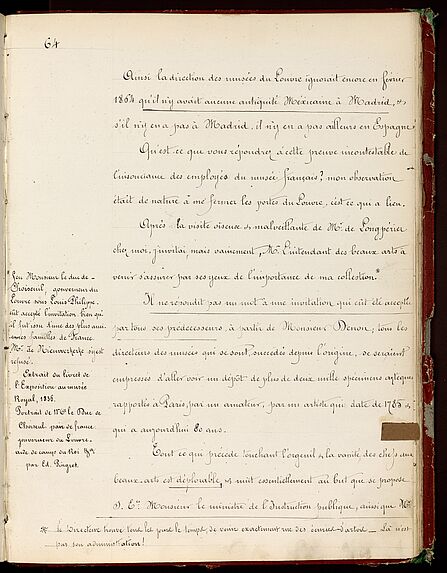 64
Ainsi la direction des musées du Louvre ignorait encore en février
1864 qu'il n'y avait aucune antiquité Méxicaine à Madrid, et
s'il n'y en a pas à Madrid, il n'y en a pas ailleurs en Espagne
Qu'est ce que vous répondrez à cette preuve incontestable de
l'insouciance des employés du musée français? mon observation
était de nature à me fermer les portes du Louvre, c'est ce qui a lieu.
Après la visite oiseuse & malveillante de Mr. de Longpérier
chez moi, j'invitai mais vainement, Mr. l'intendant des beaux arts à
venir s'assurer par ses yeux de l'importance de ma collection.
Il ne répondit pas un mot à une invitation qui eût été acceptée
par tous ses prédécesseurs, à partir de Monsieur Denon; tous les
directeurs des musées qui se sont succédés depuis l'origine, se seraient
empressés d'aller voir un dépôt de plus de deux mille spécimens
rapportés à Paris, par un amateur, par un artiste qui date de 1785 &
qui a aujourd'hui 80 ans.
Tout ce qui précède touchant l'orgueil & la vanité des chefs aux
beaux arts est déplorable, & nuit essentiellement au but que se propose
S. E. Monsieur le ministre de l'Instruction publique, ainsi que Mrs
feu Monsieur le duc de
Choiseul, gouverneur du
Louvre sous Louis Philippe,
eût accepté l'invitation bien qu'
il fut issu d'une des plus anci-
ennes familles de France
Mr. de Nieuwerkerke s'y est
refusé.
Extrait du livret de
l'Exposition au musée
Royal, 1836.
Portrait de Mr. le Duc de
Choiseul pair de france
gouverneur du Louvre.
aide de camp du Roi &a
par Ed. Pingret.
le Directeur trouve tous les jours le temps, de venir exactement rue des écuries d'artois — Là n'est
pas son administration!